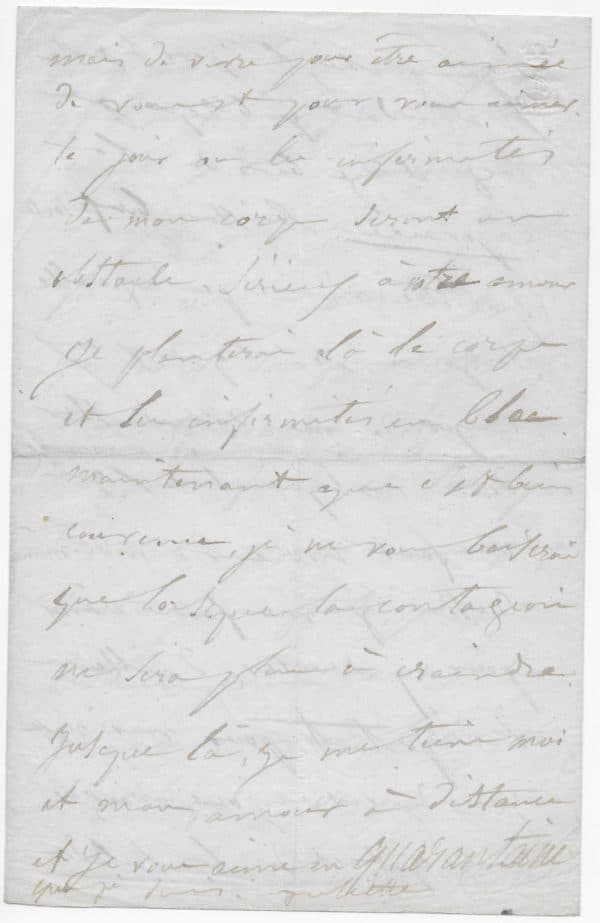 mais de vivre pour être aimée
de vous et pour vous aimer.
le jour où les infirmités
de mon corps seront un
obstacle sérieux à votre amour
je planterai là le corps
et les infirmités en bloc.
maintenant que c'est bien
convenu, je ne vous baiserai
que lorsque la contagion
ne sera plus à craindre.
Jusque là, je me tiens moi
et mon amour à distance
et je vous aime en quarantaine
que je suis. Juliette